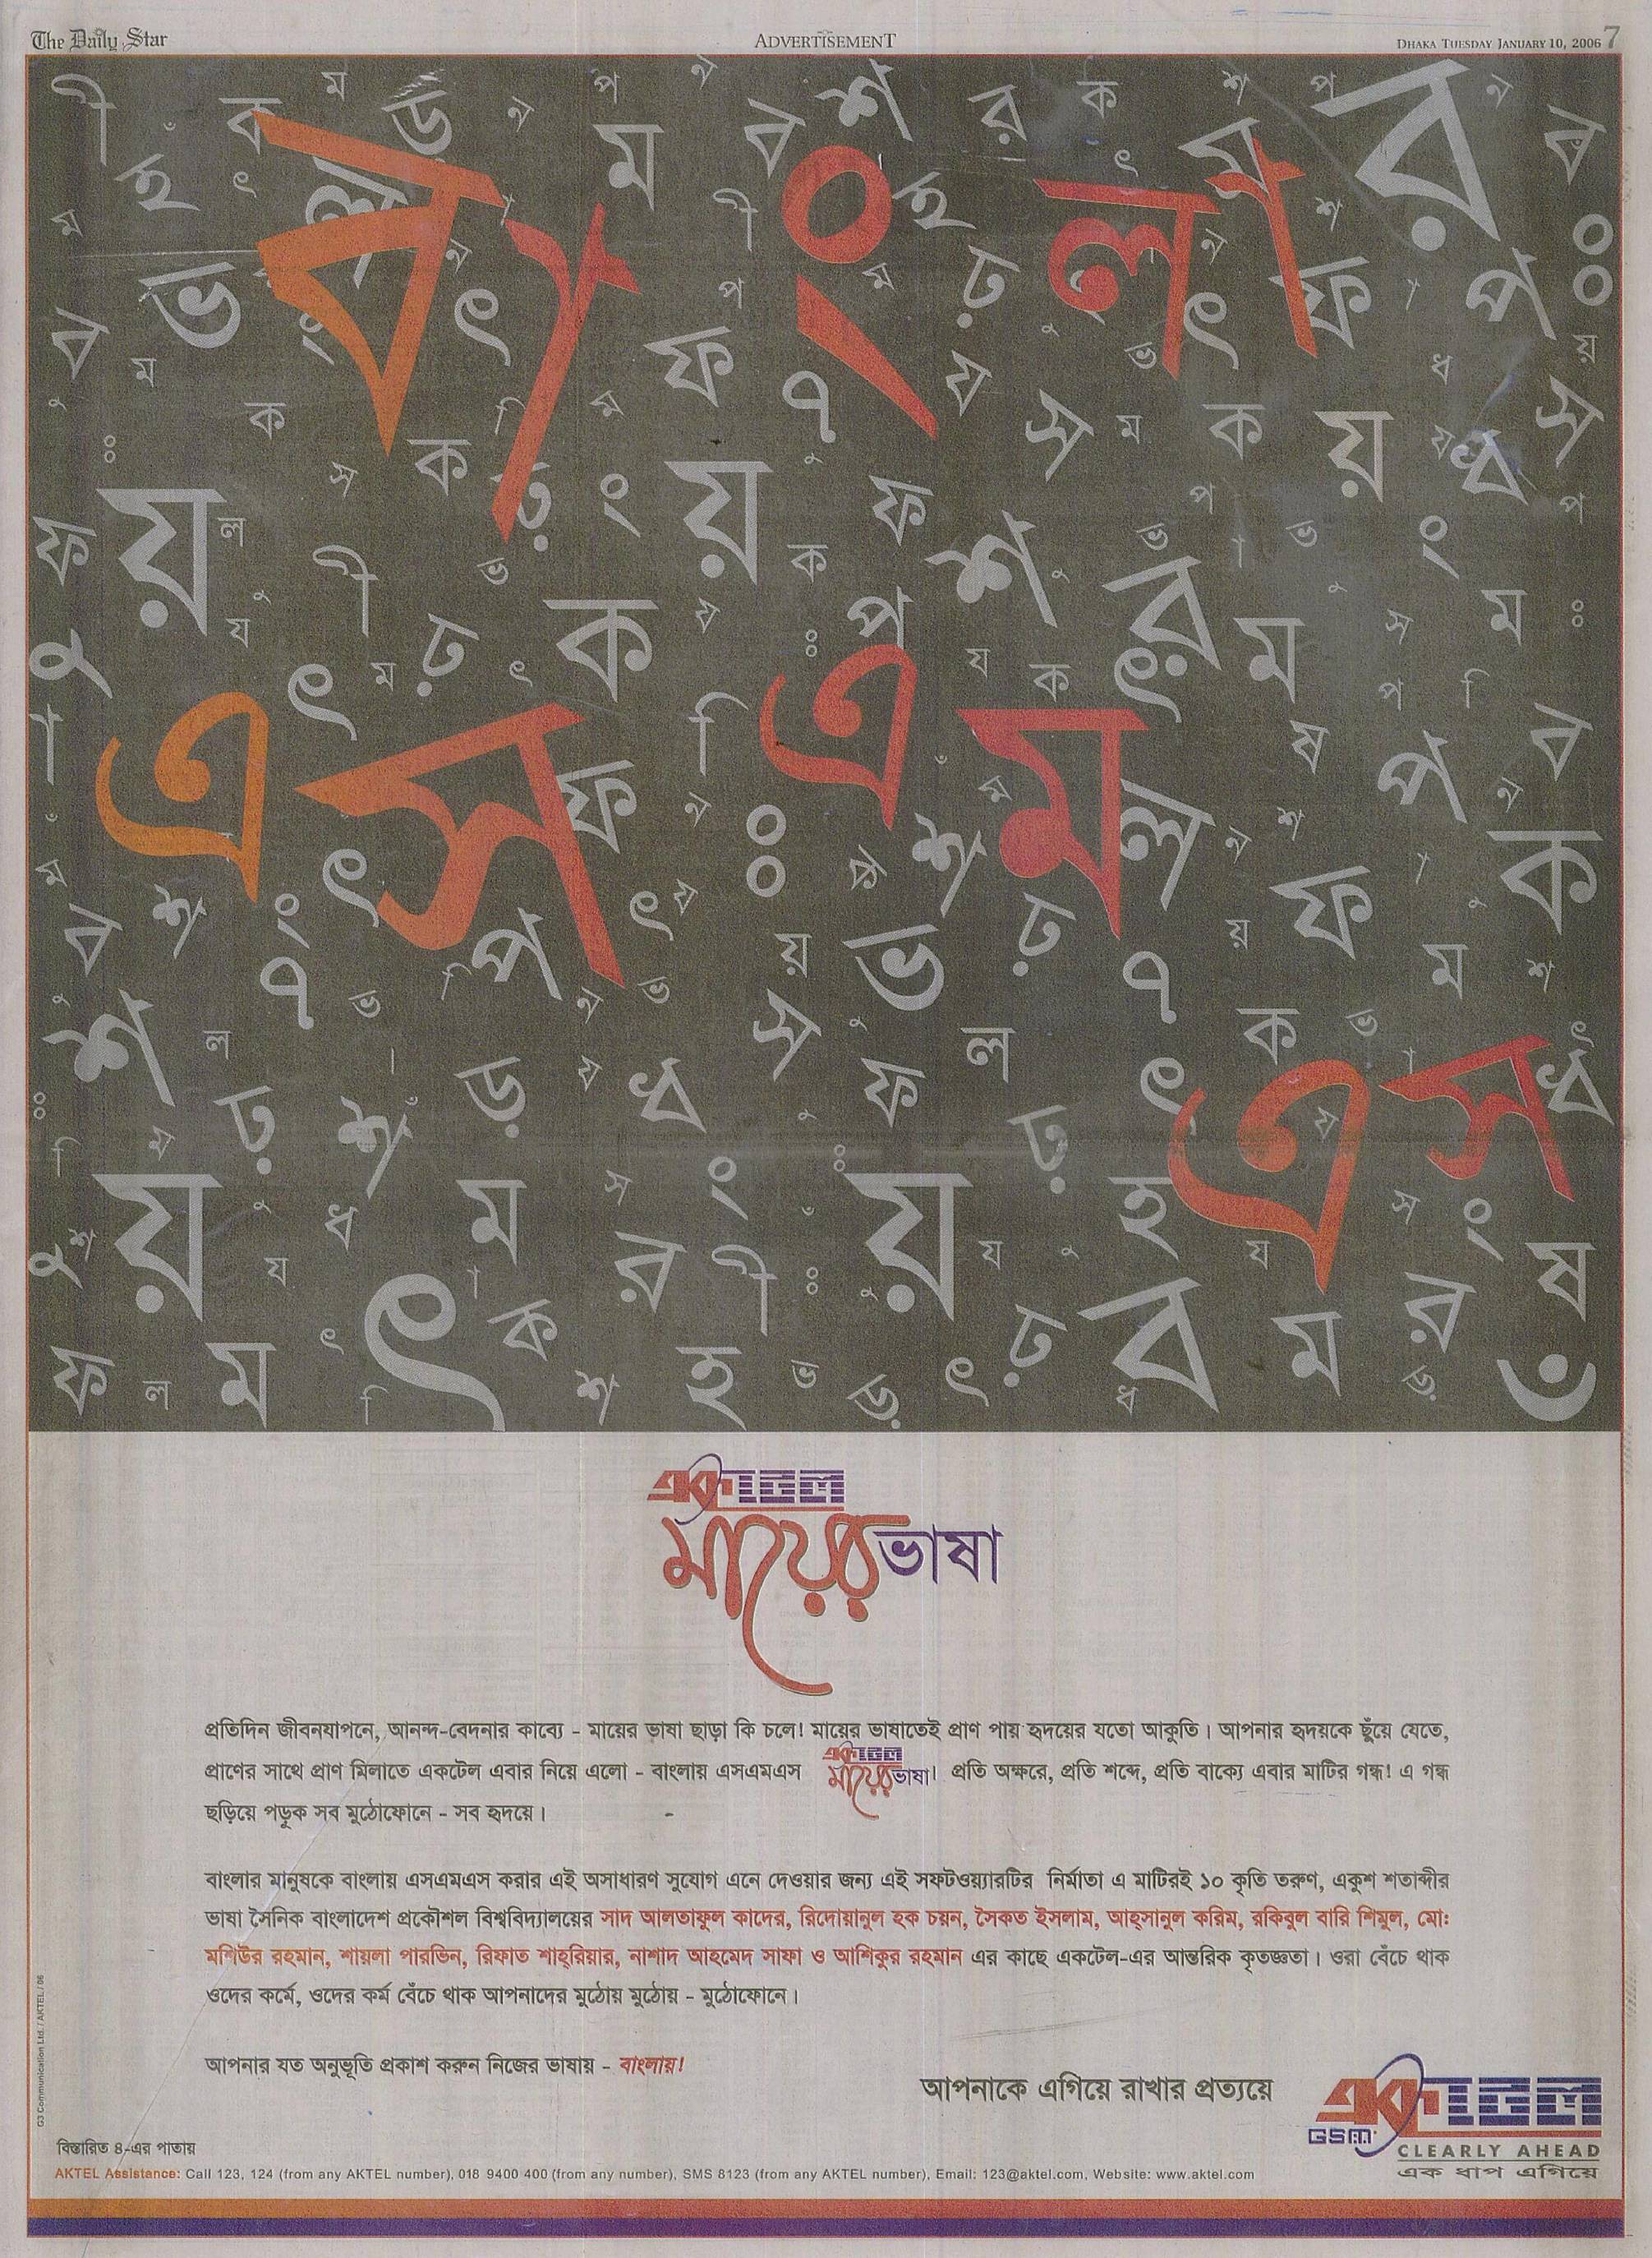 The Daily Star
ADVERTISEMENT
DHAKA TUESDAY JANUARY 10, 2006 7
বাংলা
এস এম
এস
একটেল
মায়ের ভাষা
প্রতিদিন জীবনযাপনে, আনন্দ-বেদনার কাব্যে - মায়ের ভাষা ছাড়া কি চলে! মায়ের ভাষাতেই প্রাণ পায় হৃদয়ের যতো আকুতি। আপনার হৃদয়কে ছুঁয়ে যেতে,
প্রাণের সাথে প্রাণ মিলাতে একটেল এবার নিয়ে এলো - বাংলায় এসএমএস একটেল মায়ের ভাষা। প্রতি অক্ষরে, প্রতি শব্দে, প্রতি বাক্যে এবার মাটির গন্ধ! এ গন্ধ
ছড়িয়ে পড়ুক সব মুঠোফোনে - সব হৃদয়ে।
বাংলার মানুষকে বাংলায় এসএমএস করার এই অসাধারণ সুযোগ এনে দেওয়ার জন্য এই সফটওয়্যারটির নির্মাতা এ মাটিরই ১০ কৃতি তরুণ, একুশ শতাব্দীর
ভাষা সৈনিক বাংলাদেশ প্রকৌশল বিশ্ববিদ্যালয়ের সাদ আলতাফুল কাদের, রিদোয়ানুল হক চয়ন, সৈকত ইসলাম, আহ্সানুল করিম, রকিবুল বারি শিমুল, মো:
মশিউর রহমান, শায়লা পারভিন, রিফাত শাহ্‌রিয়ার, নাশাদ আহমেদ সাফা ও আশিকুর রহমান এর কাছে একটেল-এর আন্তরিক কৃতজ্ঞতা। ওরা বেঁচে থাক
ওদের কর্মে, ওদের কর্ম বেঁচে থাক আপনাদের মুঠোয় মুঠোয় - মুঠোফোনে।
আপনার যত অনুভূতি প্রকাশ করুন নিজের ভাষায় - বাংলায়!
আপনাকে এগিয়ে রাখার প্রত্যয়ে
একটেল
GSM
CLEARLY AHEAD
এক ধাপ এগিয়ে
বিস্তারিত ৪-এর পাতায়
AKTEL Assistance: Call 123, 124 (from any AKTEL number), 018 9400 400 (from any number), SMS 8123 (from any AKTEL number), Email: 123@aktel.com, Website: www.aktel.com
G3 Communication Ltd. / AKTEL / 06